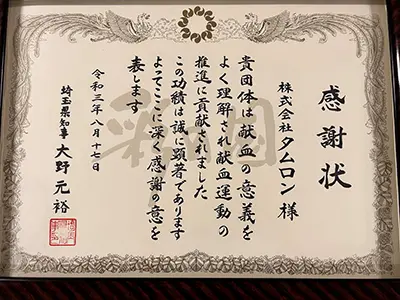 感謝状
株式会社タムロン様
貴団体は献血の意義を
よく理解され献血運動の
推進に貢献されました
この功績は誠に顕著であります
よってここに深く感謝の意を
表します
令和三年八月十七日
埼玉県知事 大野元裕
彩の国